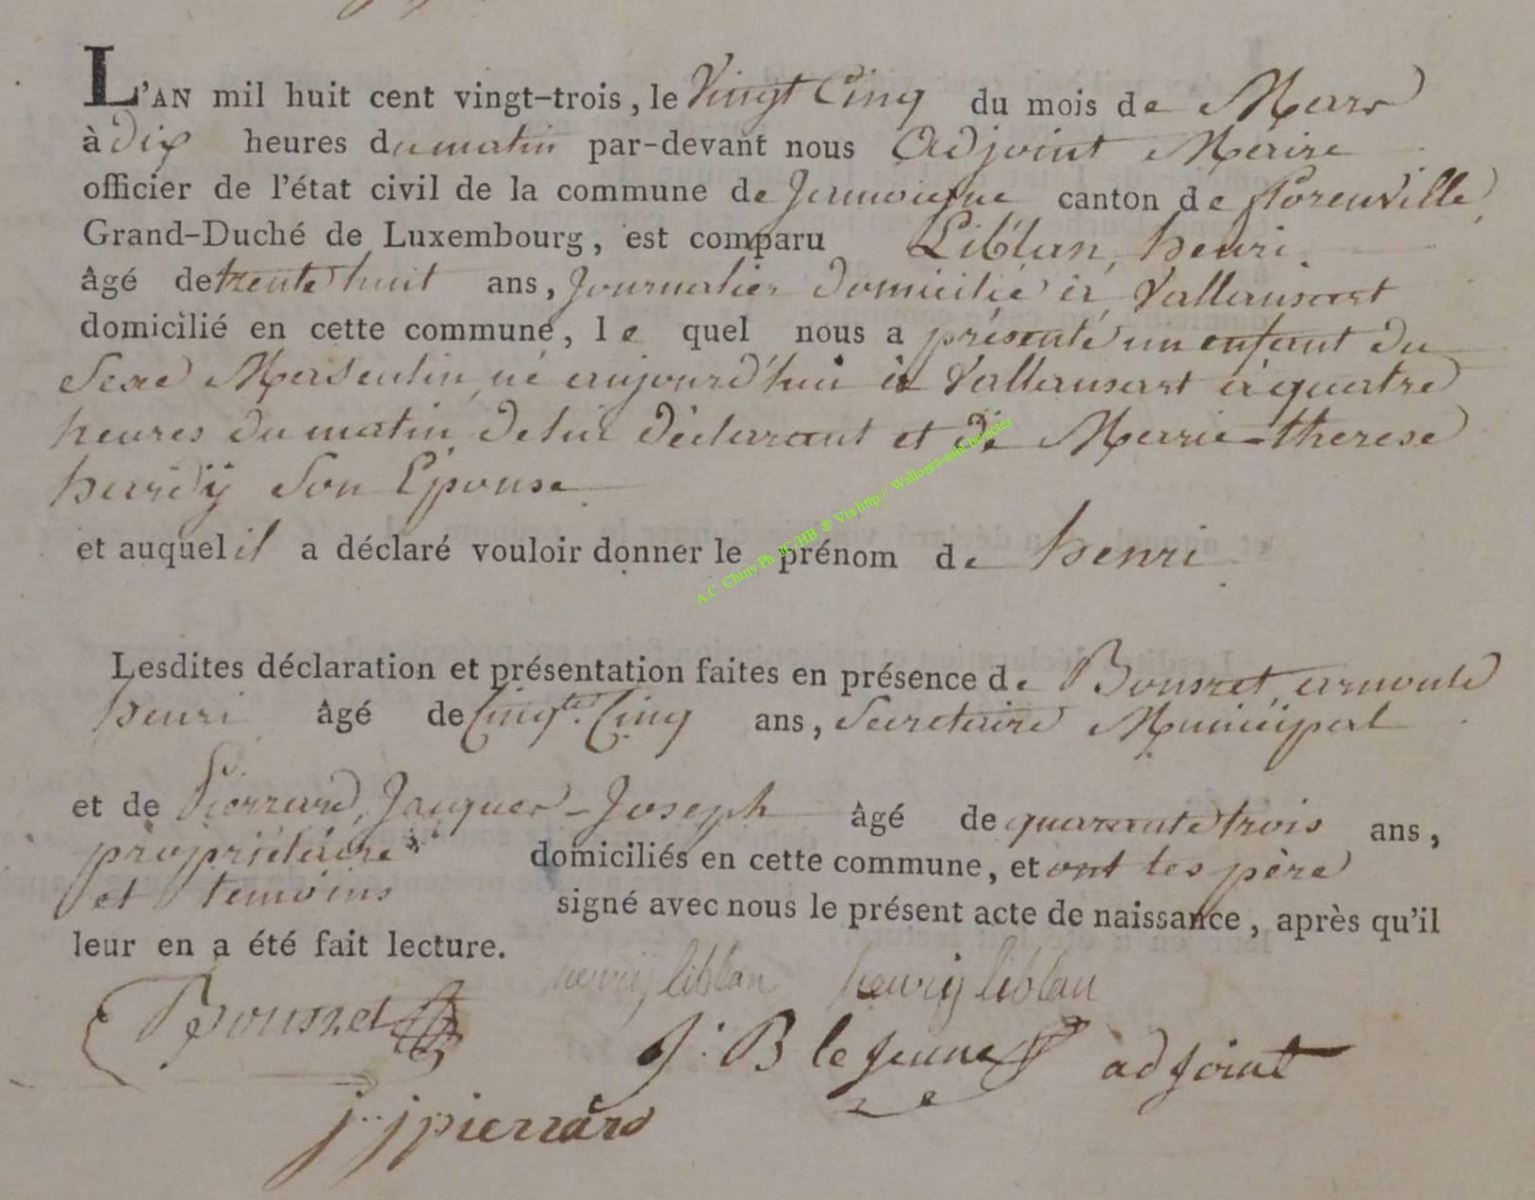 L'AN mil huit cent vingt-trois, le Vingt Cinq du mois de Mars
à dix heures du matin par-devant nous Adjoint Maire
officier de l'état civil de la commune de Jamoigne canton de florenville
Grand-Duché de Luxembourg, est comparu Liblan, henri.
âgé de trente huit ans, Journalier domicilié à Vallansart
domicilié en cette commune, le quel nous a présenté un enfant du
Sexe Masculin, né aujourd'hui à Vallansart à quatre
heures du matin, de lui déclarant et de Marie-therese
hardÿ Son Epouse
et auquel il a déclaré vouloir donner le prénom de henri
Lesdites déclaration et présentation faites en présence de arnould
henri âgé de Cinqte. Cinq ans, Secretaire Municipal
et de Pierrard, Jacques-Joseph âgé de quarante trois ans,
propriétaire domiciliés en cette commune, et ont les père
et temoins signé avec nous le présent acte de naissance, après qu'il
leur en a été fait lecture.
henrij liblan henrij liblan
J. B le Jeune adjoint
j j pierrard
A.C. Chiny Ph JC/HB ® Via http:// Wallonia-asbl.be/actes